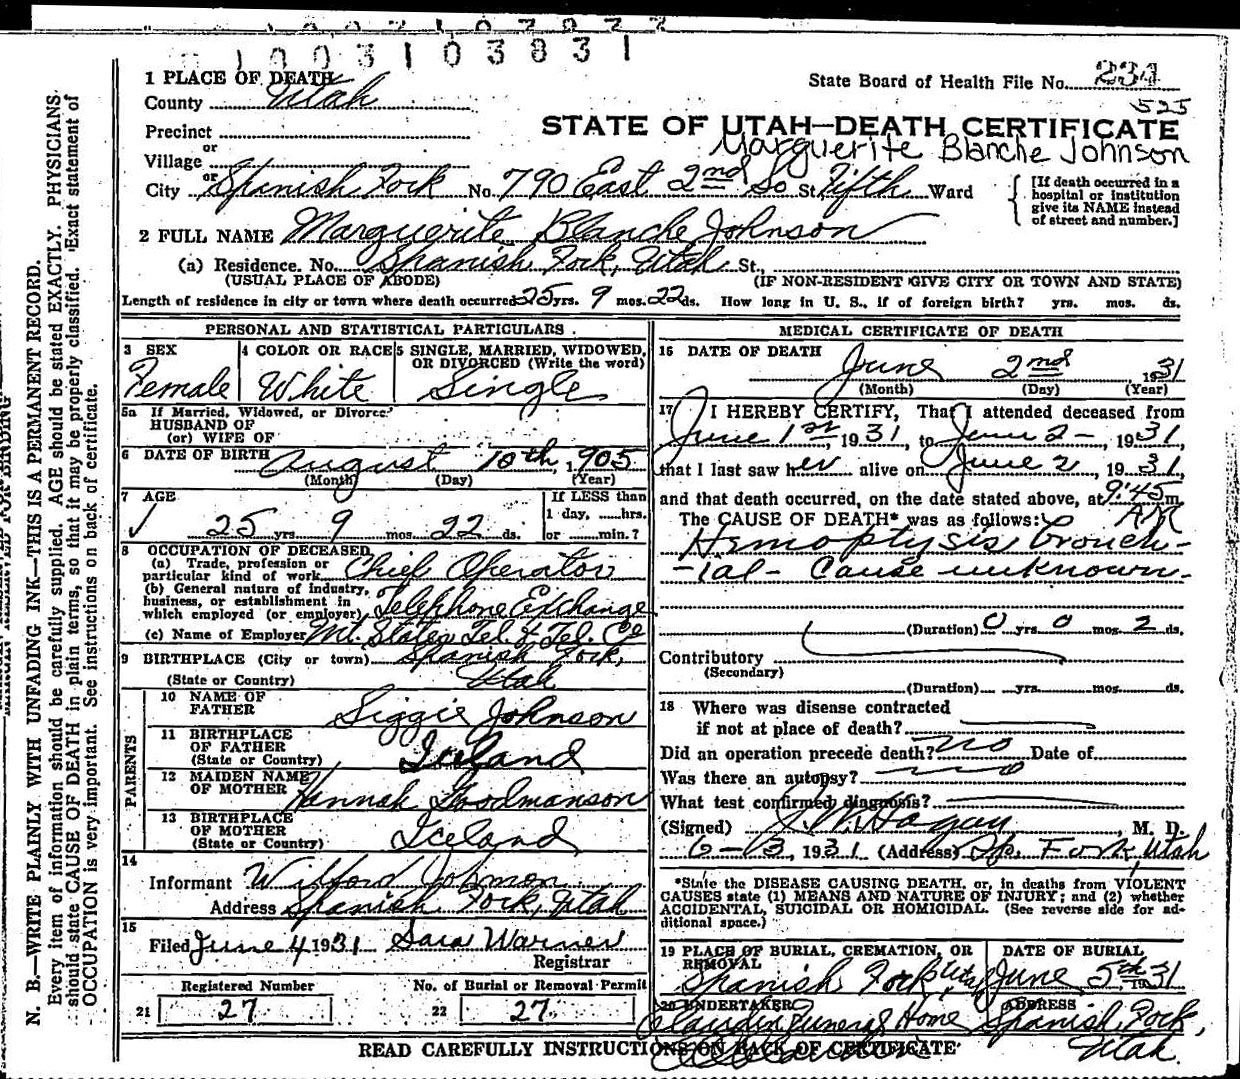 1003103831
1 PLACE OF DEATH
State Board of Health File No. 234
County Utah
525
Precinct
STATE OF UTAH—DEATH CERTIFICATE
or
Marguerite Blanche Johnson
Village
or
City Spanish Fork No. 790 East 2nd So St. Fifth Ward
[If death occurred in a
hospital or institution
give its NAME instead
of street and number.]
2 FULL NAME Marguerite Blanche Johnson
(a) Residence. No. Spanish Fork, Utah St.,
(USUAL PLACE OF ABODE) (IF NON-RESIDENT GIVE CITY OR TOWN AND STATE)
Length of residence in city or town where death occurred 25 yrs. 9 mos. 22 ds. How long in U. S., if of foreign birth? yrs. mos. ds.
PERSONAL AND STATISTICAL PARTICULARS.
3 SEX
Female
4 COLOR OR RACE
White
5 SINGLE, MARRIED, WIDOWED,
OR DIVORCED (Write the word)
Single
5a If Married, Widowed, or Divorce
HUSBAND OF
(or) WIFE OF
6 DATE OF BIRTH August 10th, 1905
(Month) (Day) (Year)
7 AGE
25 yrs 9 mos. 22 ds.
If LESS than
1 day, ......hrs.
or ......min.?
8 OCCUPATION OF DECEASED
(a) Trade, profession or
particular kind of work Chief Operator
(b) General nature of industry,
business, or establishment in
which employed (or employer) Telephone Exchange
(c) Name of Employer Mt. States Tel. & Tel. Co
9 BIRTHPLACE (City or town) Spanish Fork,
(State or Country) Utah
PARENTS
10 NAME OF
FATHER Siggie Johnson
11 BIRTHPLACE
OF FATHER
(State or Country) Iceland
12 MAIDEN NAME
OF MOTHER Hannah Goodmanson
13 BIRTHPLACE
OF MOTHER
(State or Country) Iceland
14
Informant Wilford Johnson
Address Spanish Fork, Utah
15
Filed June 4 1931 Sara Warner
Registrar
Registered Number
21 27
No. of Burial or Removal Permit
22 27
MEDICAL CERTIFICATE OF DEATH
16 DATE OF DEATH
June 2nd 1931
(Month) (Day) (Year)
17 I HEREBY CERTIFY, That I attended deceased from
June 1st, 1931, to June 2-, 1931,
that I last saw her alive on June 2, 1931,
and that death occurred, on the date stated above, at 9:45 m.
The CAUSE OF DEATH* was as follows: AM
Hemoptysis bronch-
-ial- Cause unknown-
(Duration) 0 yrs 0 mos 2 ds.
Contributory
(Secondary)
(Duration) yrs. mos. ds.
18 Where was disease contracted
if not at place of death?
Did an operation precede death? no Date of
Was there an autopsy? no
What test confirmed diagnosis?
(Signed) J. W. Hagan, M. D.
6-13, 1931 (Address) Sp. Fork, Utah
*State the DISEASE CAUSING DEATH, or, in deaths from VIOLENT
CAUSES state (1) MEANS AND NATURE OF INJURY; and (2) whether
ACCIDENTAL, SUICIDAL OR HOMICIDAL. (See reverse side for ad-
ditional space.)
19 PLACE OF BURIAL, CREMATION, OR
REMOVAL
Spanish Fork
DATE OF BURIAL
June 5th 1931
20 UNDERTAKER
Claudin Funeral Home
ADDRESS
Spanish Fork,
Utah.
READ CAREFULLY INSTRUCTIONS ON BACK OF CERTIFICATE
N. B.—WRITE PLAINLY WITH UNFADING INK—THIS IS A PERMANENT RECORD.
Every item of information should be carefully supplied. AGE should be stated EXACTLY. PHYSICIANS
should state CAUSE OF DEATH in plain terms, so that it may be properly classified. Exact statement of
OCCUPATION is very important. See instructions on back of certificate.